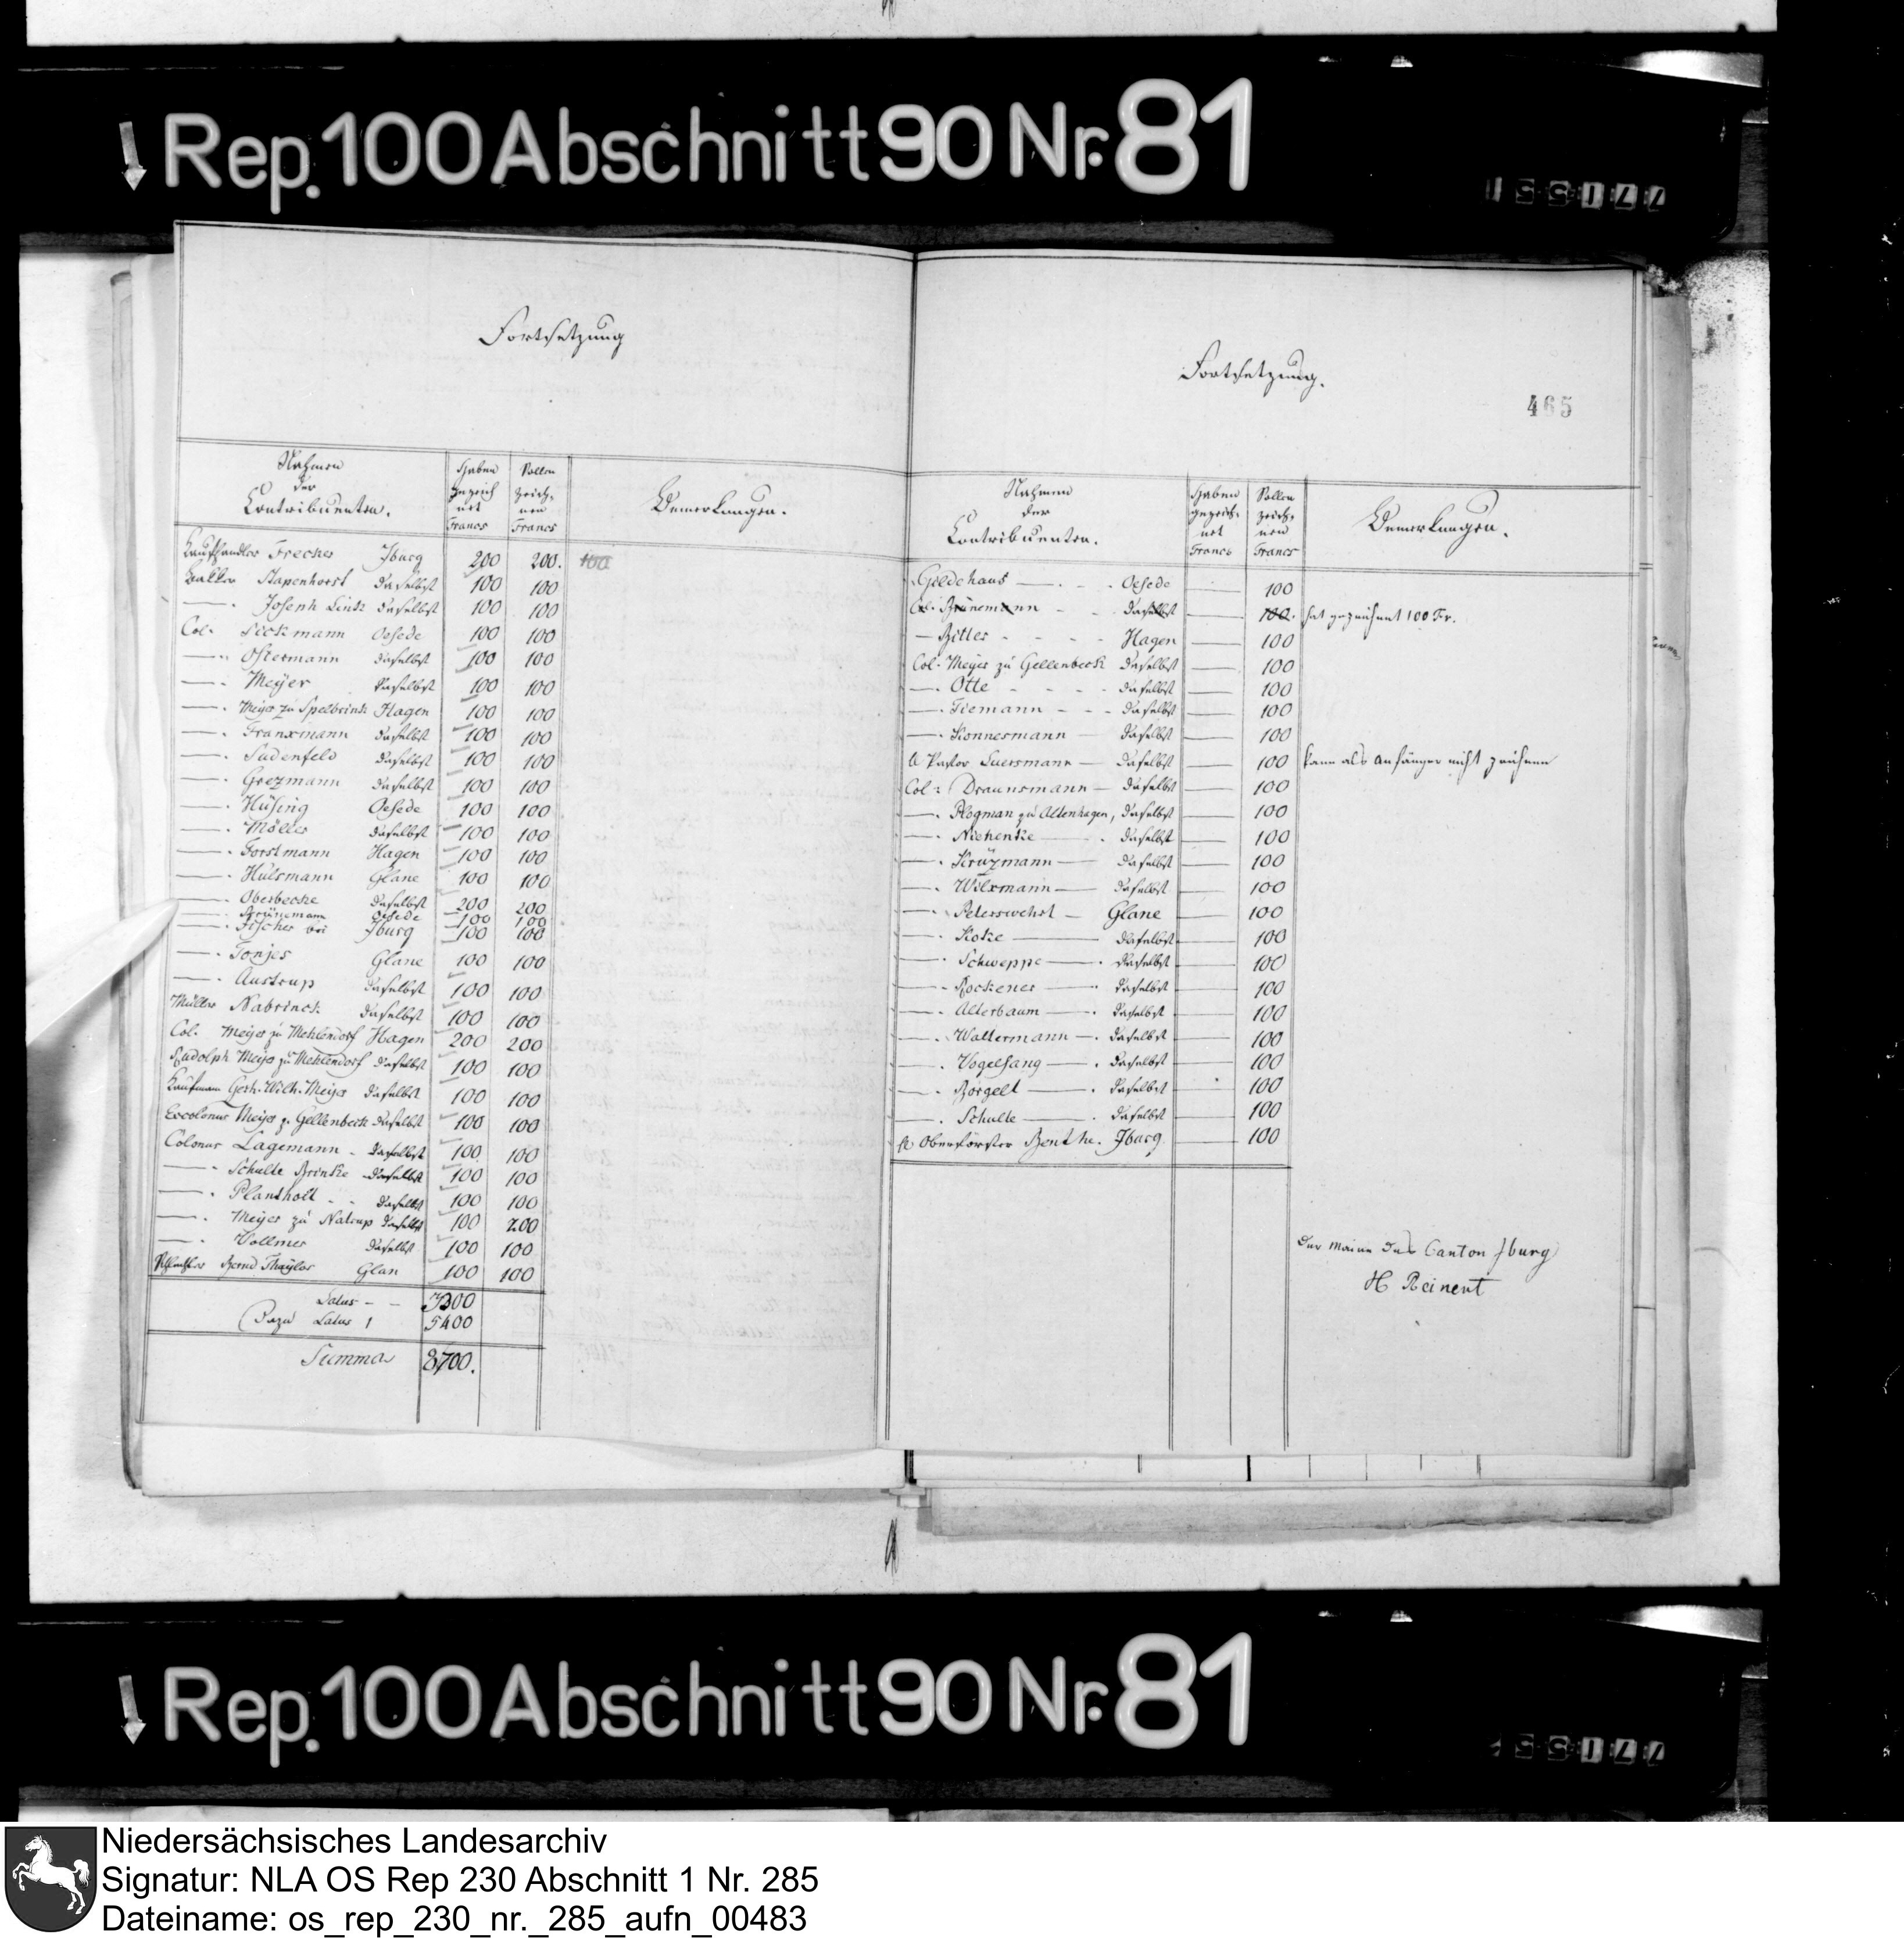 Rep. 100 Abschnitt 90 Nr. 81
Fortsetzung
Nahmen der Contribuenten. Haben gezeichnet Francs Sollen zeichnen Francs Bemerkungen.
Kaufhändler Frecker Iburg 200 200. 100
Stapenhorst daselbst 100 100
—. Joseph Linck daselbst 100 100
Col. Sickmann Oesede 100 100
—. Ostermann daselbst 100 100
—. Meyer daselbst 100 100
—. Meyer zu Spelbrink Hagen 100 100
—. Franxmann daselbst 100 100
—. Sudenfeld daselbst 100 100
—. Grezmann daselbst 100 100
—. Hüsing Oesede 100 100
—. Möller daselbst 100 100
—. Forstmann Hagen 100 100
—. Hülsmann Glane 100 100
—. Oberbecke daselbst 200 200
—. Brünemann Oesede 100 100
—. Fischer Iburg 100 100
—. Tonjes Glane 100 100
—. Austrup daselbst 100 100
Müller Nabrinck daselbst 100 100
Col. Meyer zu Mehlendorf Hagen 200 200
Rudolph Meyer zu Mehlendorf daselbst 100 100
Kaufmann Gerh. Wilh. Meyer daselbst 100 100
Excolonus Meyer z. Gellenbeck daselbst 100 100
Colonus Lagemann - daselbst 100 100
—. Schulte Brinke daselbst 100 100
—. Plantholt - - daselbst 100 100
—. Meyer zu Natrup daselbst 100 200
—. Vollmer daselbst 100 100
Bernd Thayler Glan 100 100
Latus - - 3300
Dazu Latus 1 5400
Summa 8700.
Fortsetzung.
465
Nahmen der Contribuenten. Haben gezeichnet Francs Sollen zeichnen Francs Bemerkungen.
Gildehaus — . - - Oesede — 100
Col. Brünemann - - daselbst — 100. hat gezeichnet 100 Fr.
— Ritter - - - - Hagen — 100
Col. Meyer zu Gellenbeck daselbst — 100
—. Otte - - - - daselbst — 100
—. Tiemann - - - daselbst — 100
—. Konnermann daselbst — 100
Pastor Luersmann — daselbst — 100 kann als Anfänger nicht zeichnen
Col: Braunsmann — daselbst — 100
—. Plogman zu Altenhagen, daselbst — 100
—. Niehenke — . daselbst — 100
—. Krüzmann — daselbst — 100
—. Wilxmann — daselbst — 100
—. Peterswehrt — Glane — 100
—. Kotze — daselbst — 100
—. Schweppe — . daselbst — 100
—. Rockener — daselbst — 100
—. Alterbaum — . daselbst — 100
—. Waltermann — . daselbst — 100
—. Vogelsang — . daselbst — 100
—. Börgelt — . daselbst — 100
—. Schulte — . daselbst — 100
Oberförster Benthe. Iburg — 100
Der Maire des Canton Iburg
H Reinert
Rep. 100 Abschnitt 90 Nr. 81
Niedersächsisches Landesarchiv
Signatur: NLA OS Rep 230 Abschnitt 1 Nr. 285
Dateiname: os_rep_230_nr._285_aufn_00483